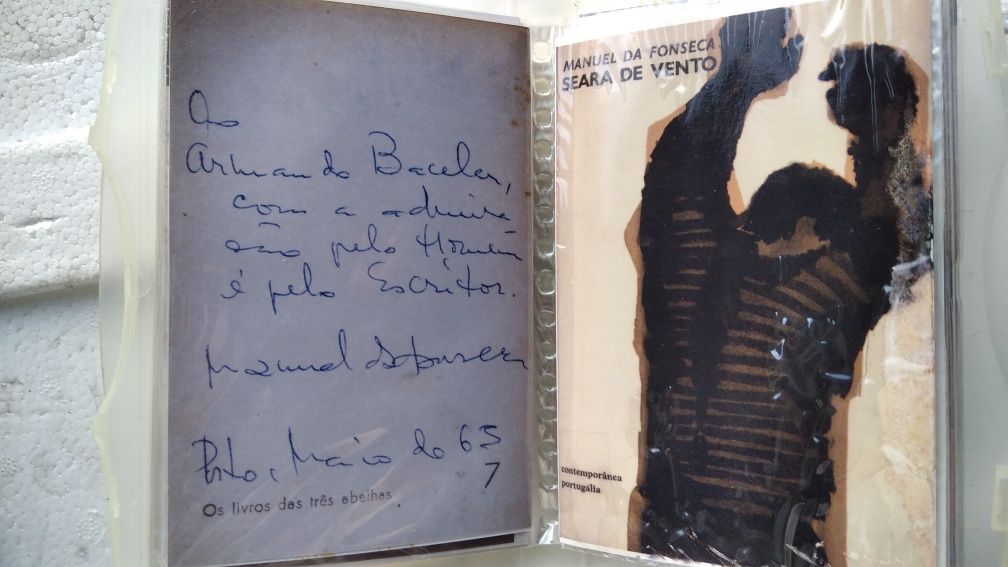 Ao
Armando Bacelar,
com a admira
ção pelo Homem
e pelo Escritor.
Manuel da Fonseca
Porto, Maio de 63
7
Os livros das três abelhas
MANUEL DA FONSECA
SEARA DE VENTO
contemporânea
portugália